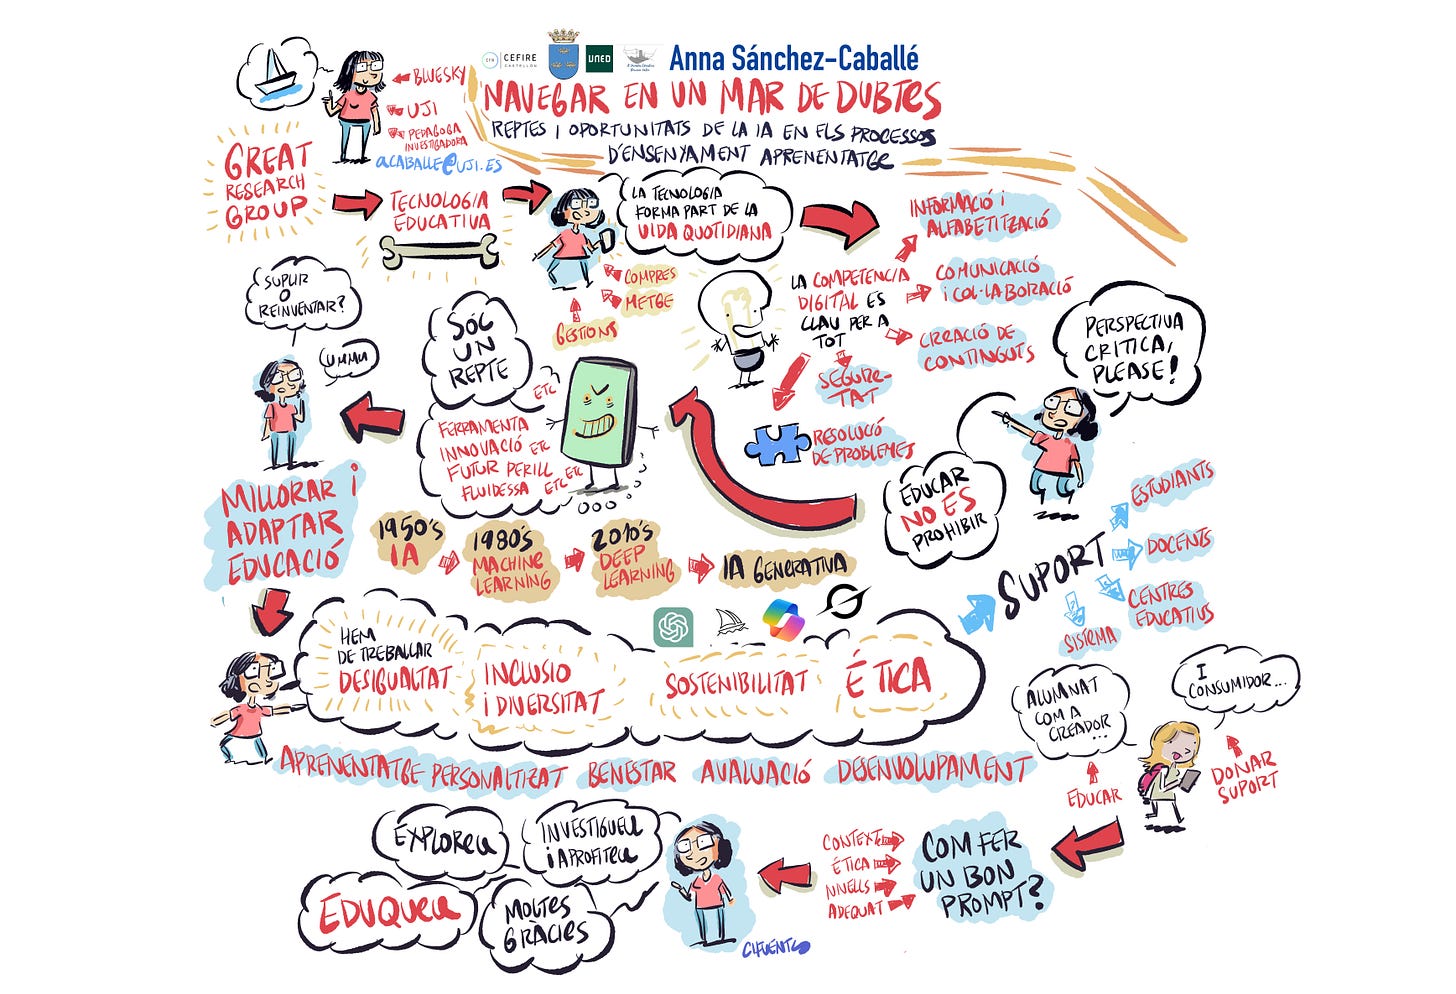 CEFIRE
CASTELLÓN
UNED
Anna Sánchez-Caballé
NAVEGAR EN UN MAR DE DUBTES
REPTES I OPORTUNITATS DE LA IA EN ELS PROCESSOS
D'ENSENYAMENT APRENENTATGE
BLUESKY
UJI
PEDAGOGA
INVESTIGADORA
acaballe@uji.es
GREAT
RESEARCH
GROUP
TECNOLOGIA
EDUCATIVA
LA TECNOLOGIA
FORMA PART DE LA
VIDA QUOTIDIANA
COMPRES
METGE
GESTIONS
LA COMPETENCIA
DIGITAL ES
CLAU PER A
TOT
INFORMACIÓ i
ALFABETITZACIÓ
COMUNICACIÓ
i COL·LABORACIÓ
CREACIÓ DE
CONTINGUTS
SEGURE-
TAT
RESOLUCIÓ
DE PROBLEMES
PERSPECTIVA
CRITICA,
PLEASE!
EDUCAR
NO ES
PROHIBIR
SÓC
UN
REPTE
ETC
FERRAMENTA
INNOVACIÓ ETC
FUTUR PERILL ETC
FLUIDESSA ETC
SUPLIR
O
REINVENTAR?
UMMM
MILLORAR i
ADAPTAR
EDUCACIÓ
1950's
IA
1980's
MACHINE
LEARNING
2010's
DEEP
LEARNING
IA GENERATIVA
SUPORT
ESTUDIANTS
DOCENTS
CENTRES
EDUCATIUS
SISTEMA
HEM
DE TREBALLAR
DESIGUALTAT
INCLUSIO
i DIVERSITAT
SOSTENIBILITAT
ÉTICA
APRENENTATGE PERSONALTIZAT BENESTAR AVALUACIÓ DESENVOLUPAMENT
ALUMNAT
COM A
CREADOR
...
I
CONSUMIDOR...
EDUCAR
DONAR
SUPORT
COM FER
UN BON
PROMPT?
CONTEXT
ÉTICA
NIVELLS
ADEQUAT
EXPLOREU
INVESTIGUEU
i APROFITEU
EDUQUEU
MOLTES
GRÀCIES
CIFUENTES